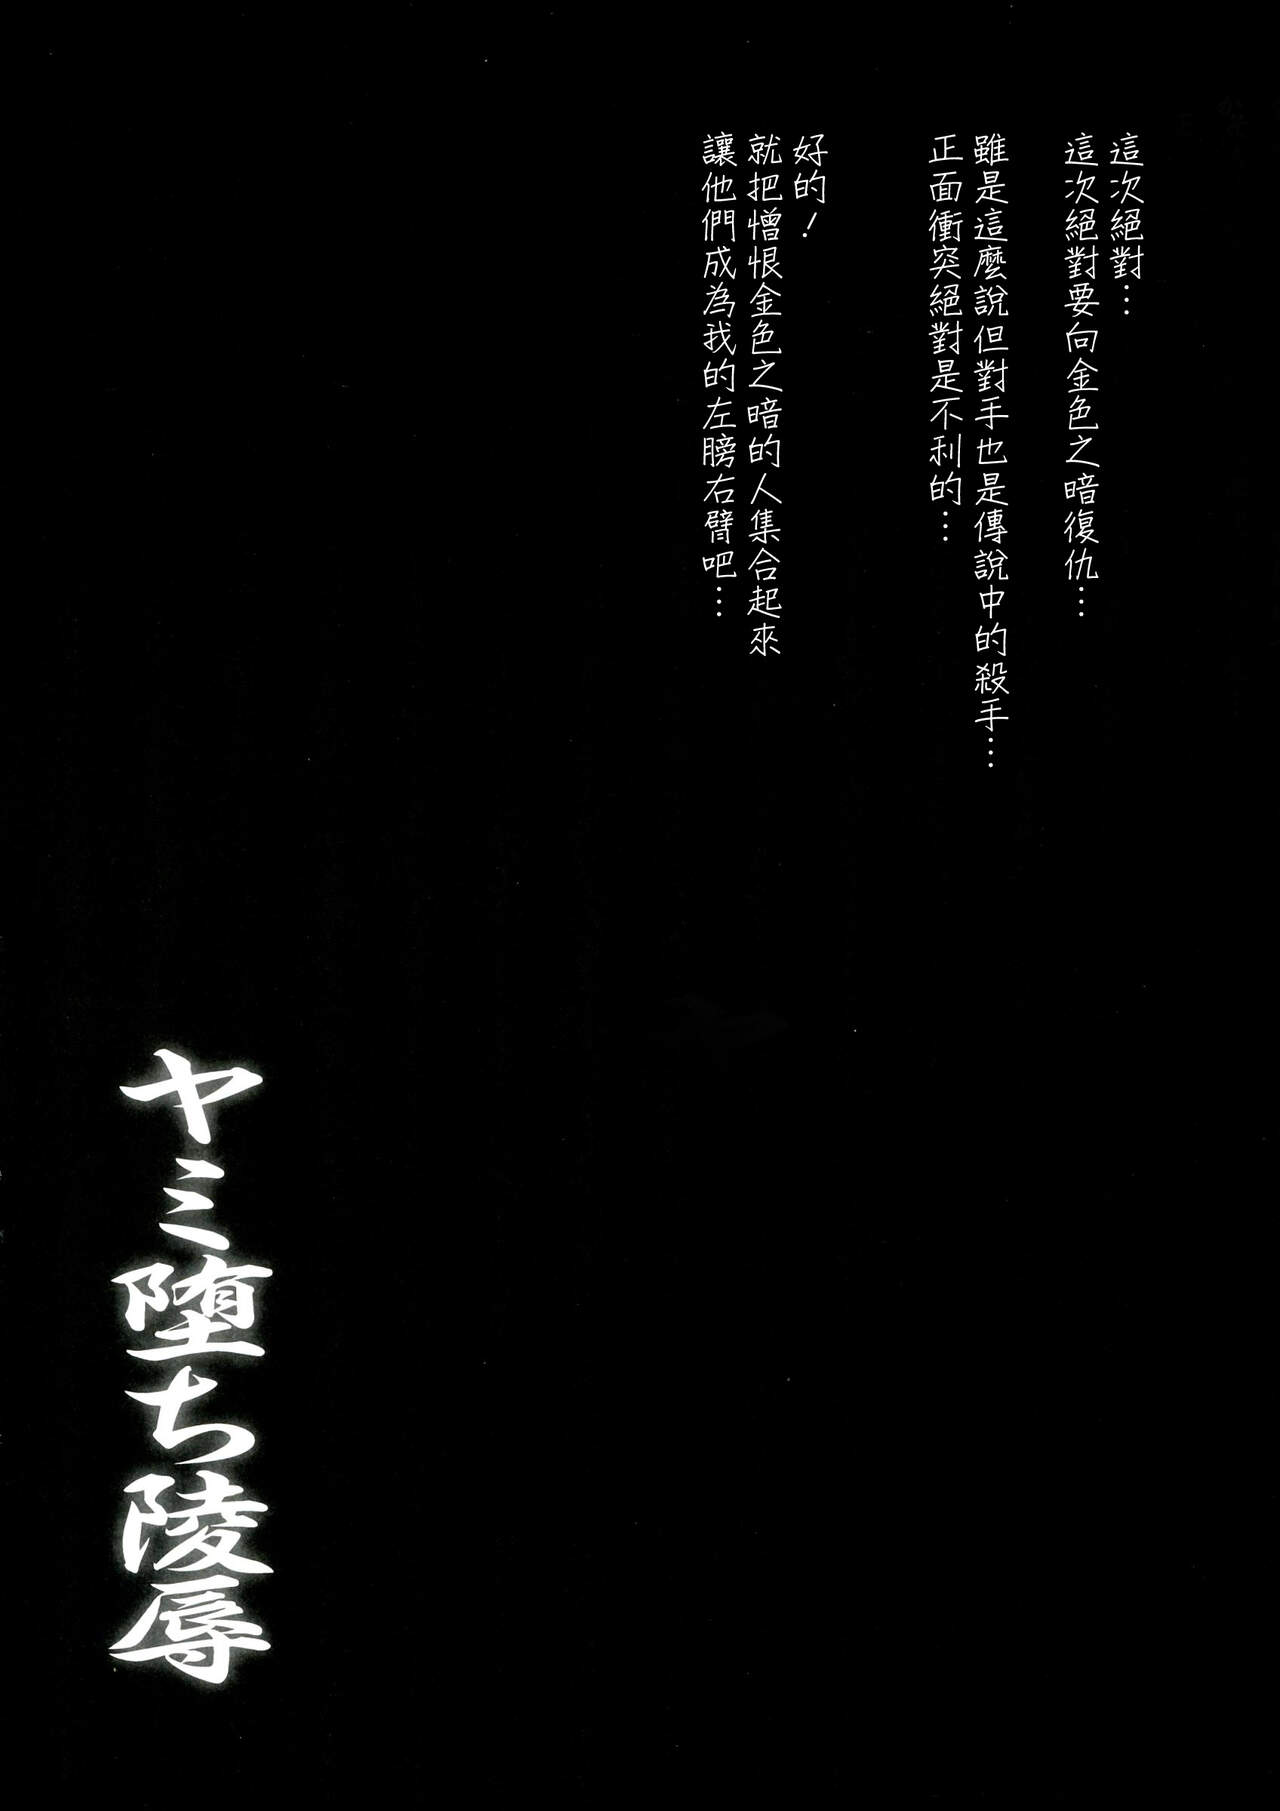 這次絕對…
這次絕對要向金色之暗復仇…
雖是這麼說但對手也是傳說中的殺手…
正面衝突絕對是不利的…
好的！
就把憎恨金色之暗的人集合起來
讓他們成為我的左膀右臂吧…
ヤミ堕ち陵辱